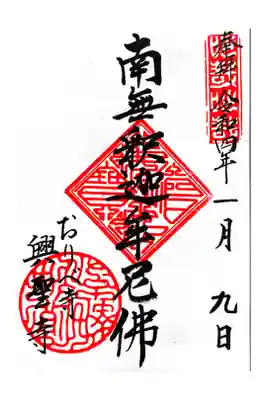 奉拝 令和四年
一月 九日
南無釈迦牟尼佛
おりべ寺
興聖寺